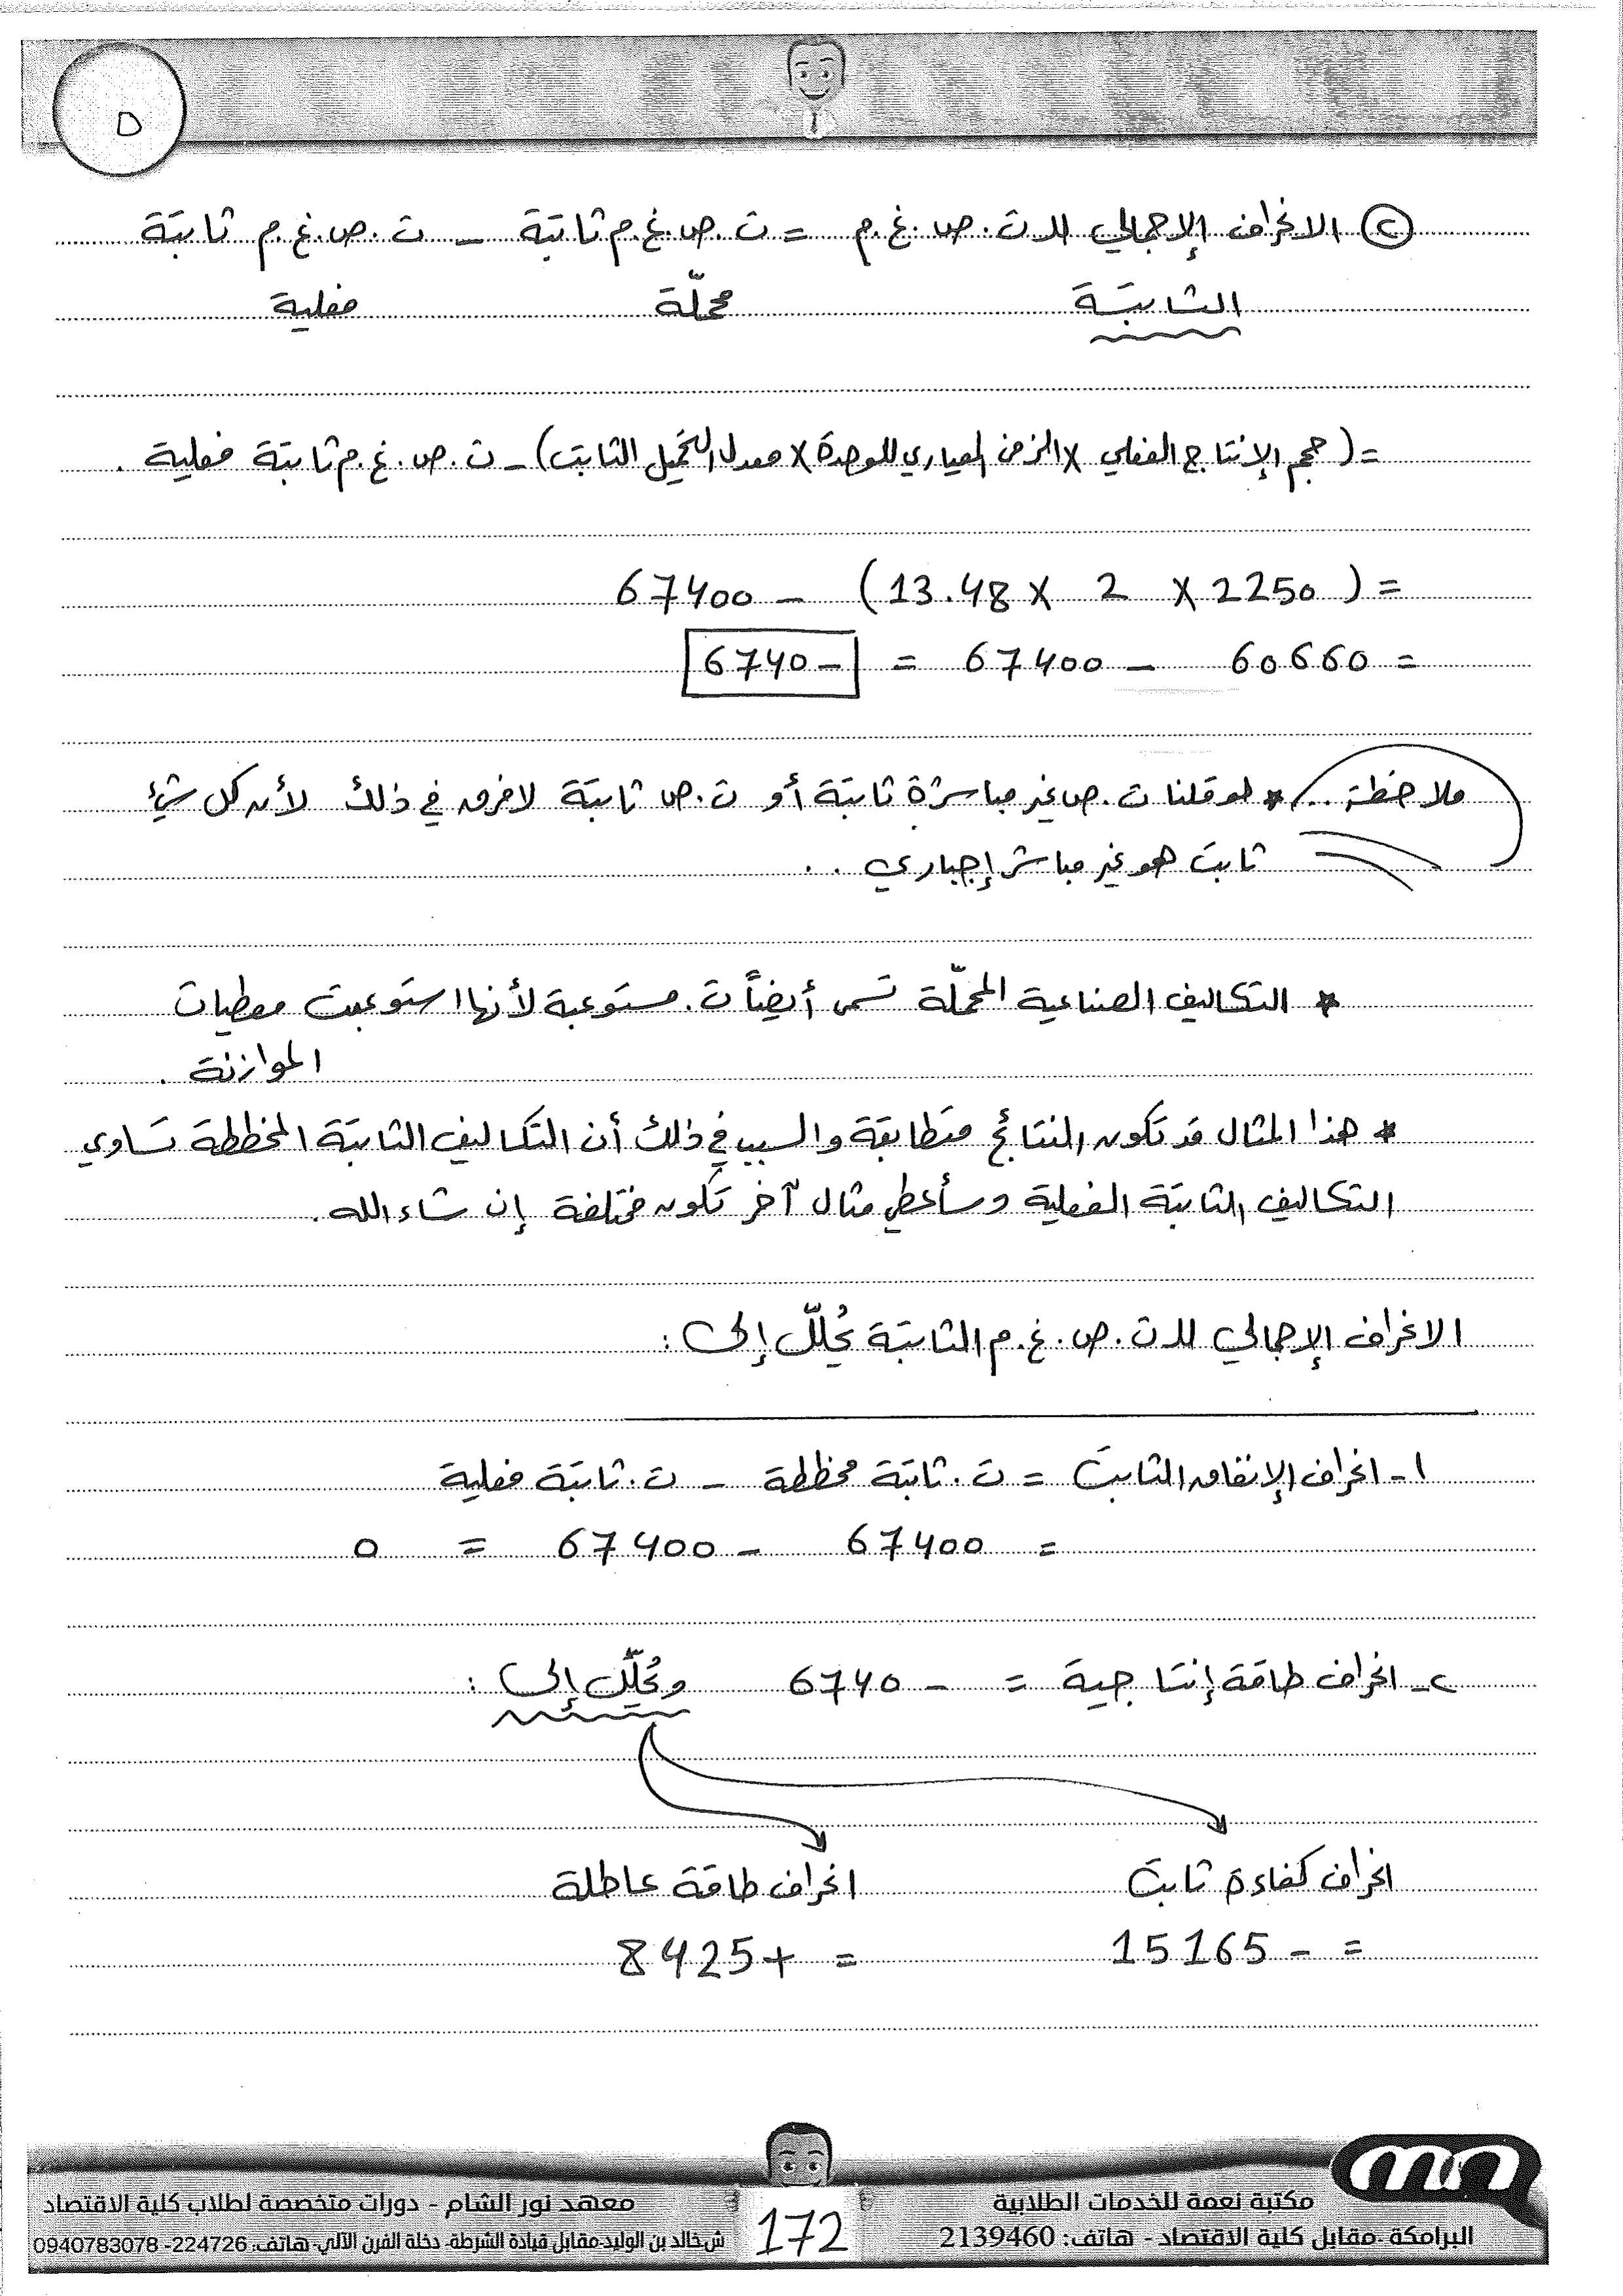 ٥
② الانحراف الإجمالي للـ ت. ص. غ. م = ت. ص. غ. م ثابتة - ت. ص. غ. م ثابتة
الثابتة محمّلة فعلية
= (حجم الإنتاج الفعلي × الزمن المعياري للوحدة × معدل التحميل الثابت) - ت. ص. غ. م ثابتة فعلية.
= (2250 × 2 × 13.48) - 67400
= 60660 - 67400 = -6740
ملاحظة .. * لو قلنا ت. ص غير مباشرة ثابتة أو ت. ص ثابتة لا فرق في ذلك لأن كل شيء
ثابت هو غير مباشر إجباري ..
* التكاليف الصناعية المحمّلة تسمى أيضاً ت. مستوعبة لأنها استوعبت معطيات
الموازنة.
* هذا المثال قد تكون النتائج متطابقة والسبب في ذلك أن التكاليف الثابتة المخططة تساوي
التكاليف الثابتة الفعلية وسأعطي مثال آخر تكون مختلفة إن شاء الله.
الانحراف الإجمالي للـ ت. ص. غ. م الثابتة يُحلّل إلى:
١- انحراف الإنفاق الثابت = ت. ثابتة مخططة - ت. ثابتة فعلية
= 67400 - 67400 = 0
٢- انحراف طاقة إنتاجية = - 6740 ويُحلّل إلى:
انحراف كفاءة ثابت انحراف طاقة عاطلة
= - 15165 = +8425
مكتبة نعمة للخدمات الطلابية
البرامكة -مقابل كلية الاقتصاد - هاتف: 2139460
172
معهد نور الشام - دورات متخصصة لطلاب كلية الاقتصاد
ش خالد بن الوليد-مقابل قيادة الشرطة- دخلة الفرن الآلي- هاتف: 224726- 0940783078